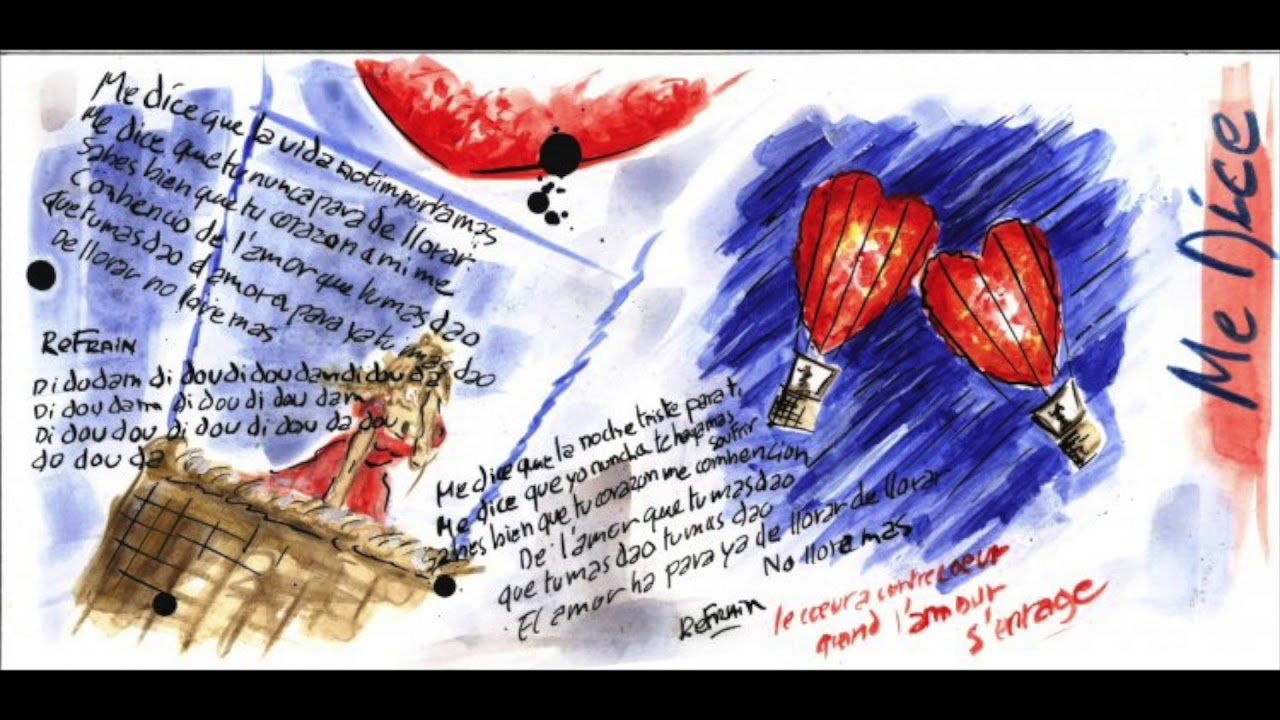 Me dice que la vida no timporta mas
Me dice que tu nunca para de llorar.
Sabes bien que tu corazon a mi me
Conbencio de l'amor que tumas dao
que tumas dao d'amor a para ya tu mas dao
De llorar no llore mas
ReFRAIN
Di dou dam di dou di dou dam di dou da
Di dou dam di dou di dou dam
Di dou dou di dou di dou da dou
do dou da
Me dice que la noche triste para ti
Me dice que yo nuncha tchapamas
soufrir
Sabes bien que tu corazon me combencion
De l'amor que tu mas dao
que tu mas dao tu mas dao
El amor ha para ya de llorar de llorar
No llora mas
ReFRAIN
le coeur a contre coeur
quand l'amour
s'enrage
Me Dice